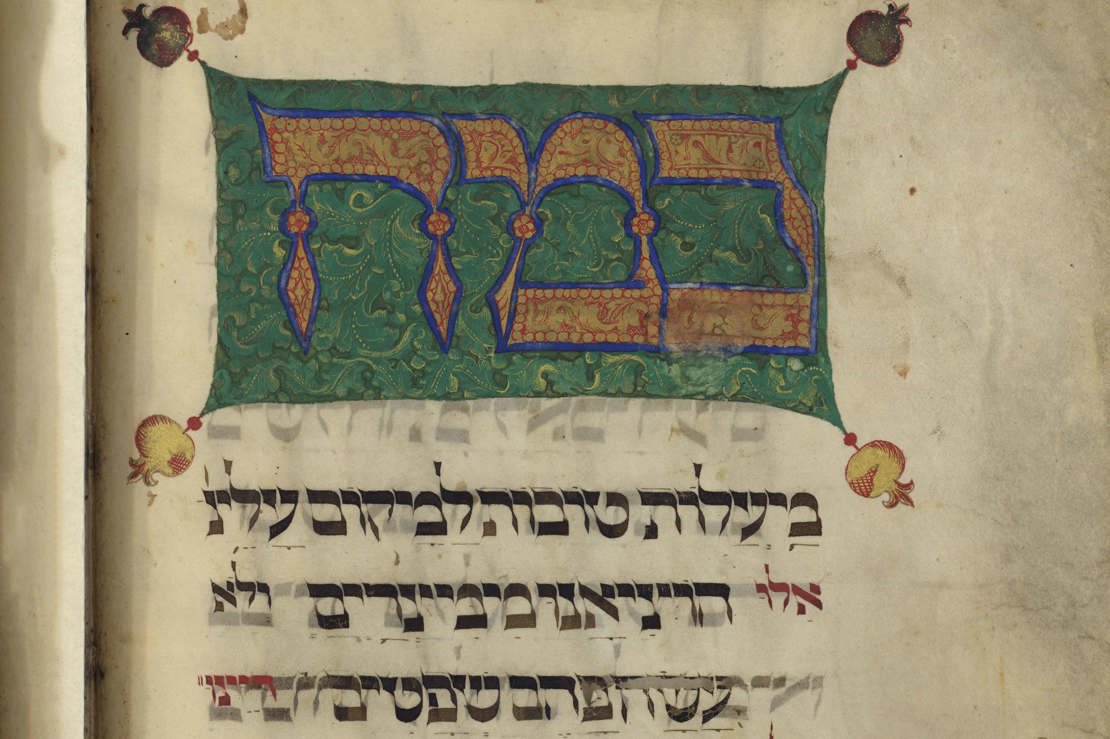 כמה
מעלות טובות למקום עלינו
אלו הוציאנו ממצרים ולא
עשה בהם שפטים דיינו